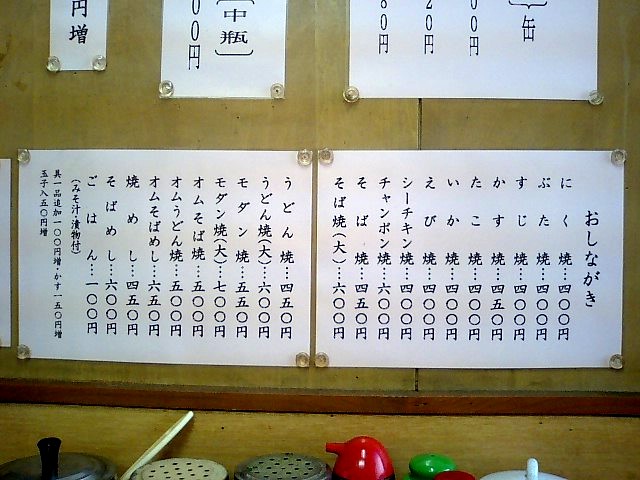 缶
〇〇
20
80
〔中瓶〕
〇〇円
円増
おしながき
にく焼…四〇〇円
ぶた焼…四〇〇円
すじ焼…四〇〇円
かす焼…四五〇円
たこ焼…四〇〇円
いか焼…四〇〇円
えび焼…四〇〇円
シーチキン焼…四〇〇円
チャンポン焼…六〇〇円
そば焼…四五〇円
そば焼(大)…六〇〇円
うどん焼…四五〇円
うどん焼(大)…六〇〇円
モダン焼…五五〇円
モダン焼(大)…七〇〇円
オムそば焼…五〇〇円
オムうどん焼…五〇〇円
オムそばめし…六五〇円
焼めし…四五〇円
そばめし…六〇〇円
ごはん…一〇〇円
(みそ汁漬物付)
具一品追加一〇〇円増・かす一五〇円増
玉子入五〇円増